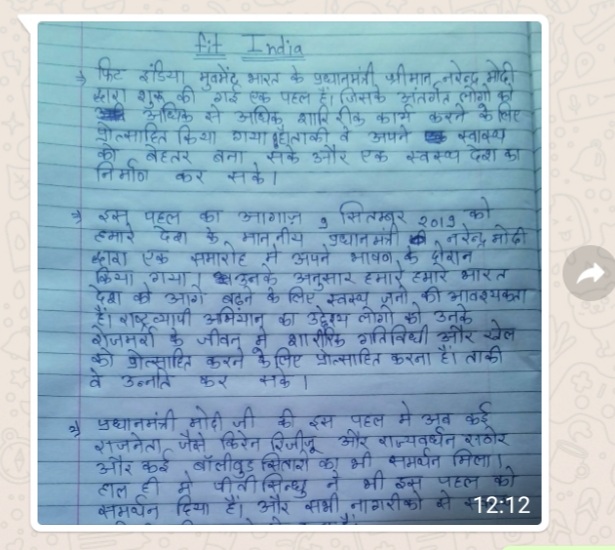 fit India
→ फिट इंडिया मुवमेंट भारत के प्रधानमंत्री श्रीमान नरेन्द्र मोदी
द्वारा शुरू की गई एक पहल हैं। जिसके अंतर्गत लोगो को
अधिक से अधिक शारीरिक कार्य करने के लिए
प्रोत्साहित किया गया है ताकी वे अपने स्वास्थ्य
को बेहतर बना सके और एक स्वस्थ देश का
निर्माण कर सके।
इस पहल का आगाज़ 9 सितम्बर 2019 को
हमारे देश के माननीय प्रधानमंत्री नरेन्द्र मोदी
द्वारा एक समारोह में अपने भाषण के दौरान
किया गया। उनके अनुसार हमारे हमारे भारत
देश को आगे बढ़ने के लिए स्वस्थ जनो की आवश्यकता
हैं। राष्ट्रव्यापी अभियान का उद्देश्य लोगो को उनके
रोजमर्रा के जीवन मे शारीरिक गतिविधी और खेल
को प्रोत्साहित करने के लिए प्रोत्साहित करना हैं। ताकी
वे उन्नति कर सके।
प्रधानमंत्री मोदी जी की इस पहल मे अब कई
राजनेता जैसे किरेन रिजीजू और राज्यवर्धन राठोर
और कई बॉलीवुड सितारो का भी समर्थन मिला।
हाल ही मे पीवी सिन्धु ने भी इस पहल को
समर्थन दिया हैं। और सभी नागरीको से
12:12